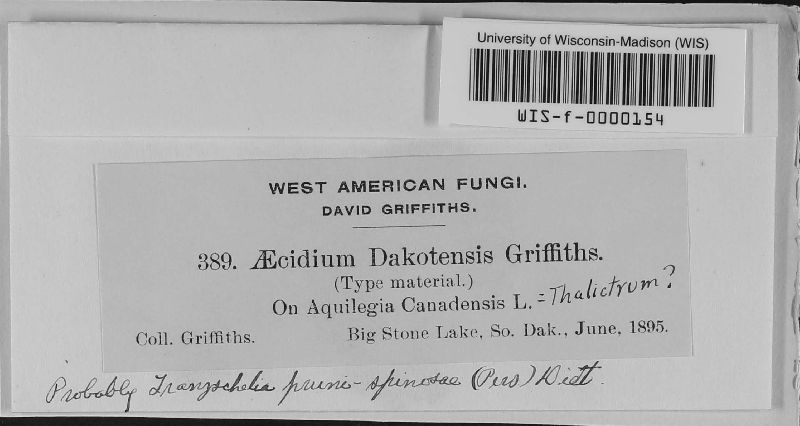 University of Wisconsin-Madison (WIS)
WIS-f-0000154
WEST AMERICAN FUNGI.
DAVID GRIFFITHS.
389. Æcidium Dakotensis Griffiths.
(Type material.)
On Aquilegia Canadensis L. = Thalictrum?
Coll. Griffiths. Big Stone Lake, So. Dak., June, 1895.
Probably Tranzschelia pruni-spinosae (Pers) Diet.